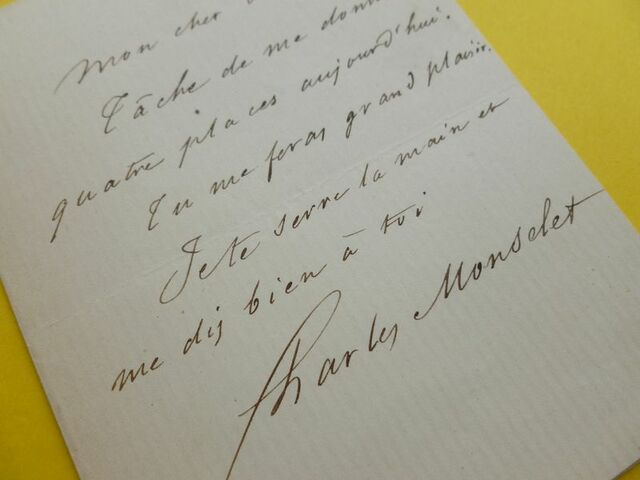 Mon cher
Tâche de me donn
quatre places aujourd'hui.
Tu me feras grand plaisir.
Je te serre la main et
me dis bien à toi
Charles Monselet